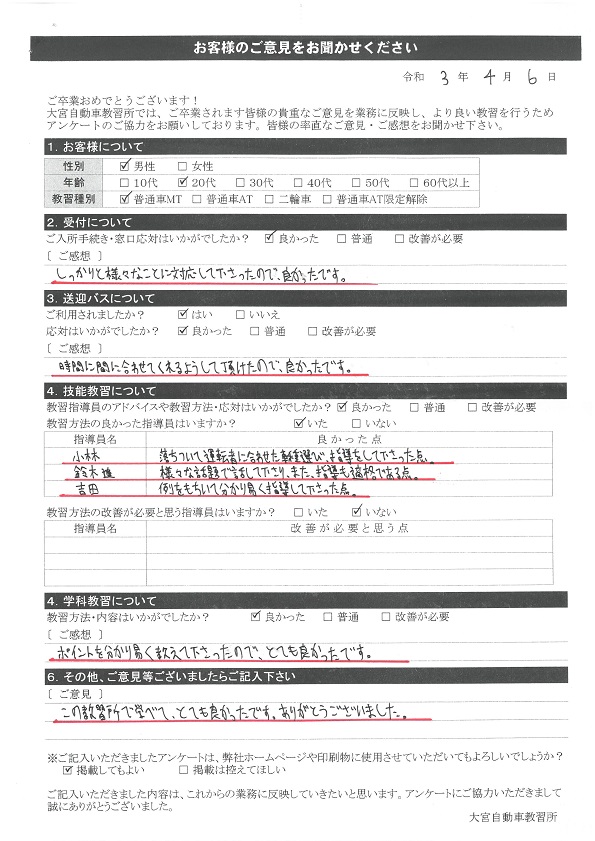 お客様のご意見をお聞かせください
令和 3 年 4 月 6 日
ご卒業おめでとうございます！
大宮自動車教習所では、ご卒業されます皆様の貴重なご意見を業務に反映し、より良い教習を行うため
アンケートのご協力をお願いしております。皆様の率直なご意見・ご感想をお聞かせ下さい。
1. お客様について
性別 ☑男性 □女性
年齢 □10代 ☑20代 □30代 □40代 □50代 □60代以上
教習種別 ☑普通車MT □普通車AT □二輪車 □普通車AT限定解除
2. 受付について
ご入所手続き・窓口応対はいかがでしたか？ ☑良かった □普通 □改善が必要
〔 ご感想 〕
しっかりと様々なことに対応して下さったので、良かったです。
3. 送迎バスについて
ご利用されましたか？ ☑はい □いいえ
応対はいかがでしたか？ ☑良かった □普通 □改善が必要
〔 ご感想 〕
時間に間に合わせてくれるようして頂けたので、良かったです。
4. 技能教習について
教習指導員のアドバイスや教習方法・応対はいかがでしたか？ ☑良かった □普通 □改善が必要
教習方法の良かった指導員はいますか？ ☑いた □いない
指導員名 良かった点
小林 落ちついて運転者に合わせた 選び、指導をして下さった点。
鈴木 様々な話題で話して下さり、また、指導も適格である点。
吉田 例をもちいて分かり易く指導して下さった点。
教習方法の改善が必要と思う指導員はいますか？ □いた ☑いない
指導員名 改善が必要と思う点
4. 学科教習について
教習方法・内容はいかがでしたか？ ☑良かった □普通 □改善が必要
〔 ご感想 〕
ポイントを分かり易く教えて下さったので、とても良かったです。
6. その他、ご意見等ございましたらご記入下さい
〔 ご意見 〕
この教習所で学べて、とても良かったです。ありがとうございました。
※ご記入いただきましたアンケートは、弊社ホームページや印刷物に使用させていただいてもよろしいでしょうか？
☑掲載してもよい □掲載は控えてほしい
ご記入いただきました内容は、これからの業務に反映していきたいと思います。アンケートにご協力いただきまして
誠にありがとうございました。
大宮自動車教習所